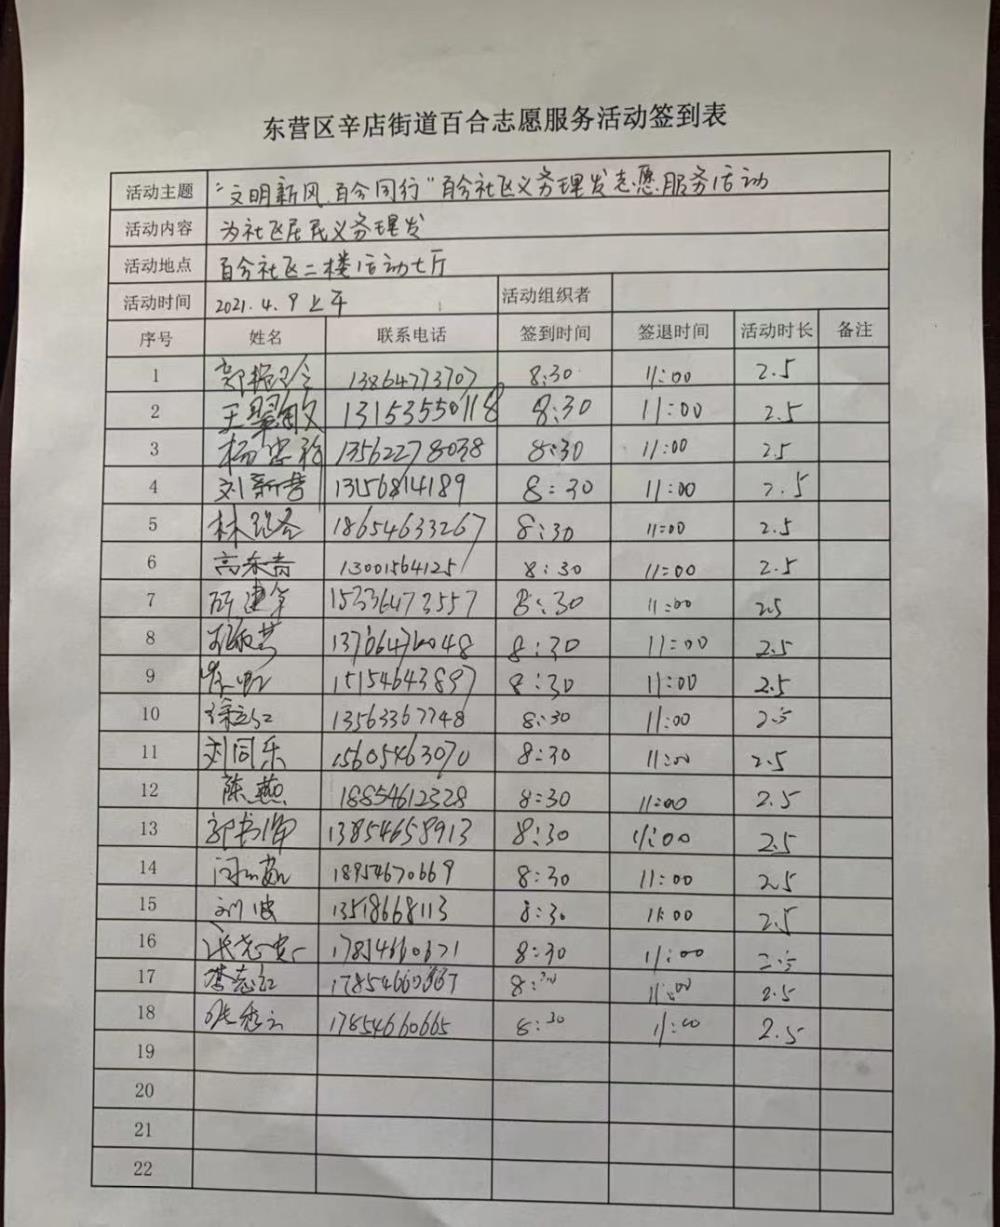 东营区辛店街道百合志愿服务活动签到表
活动主题 "文明新风、百合同行"百合社区义务理发志愿服务活动
活动内容 为社区居民义务理发
活动地点 百合社区二楼活动大厅
活动时间 2021.4.9上午 活动组织者
序号 姓名 联系电话 签到时间 签退时间 活动时长 备注
1 13864773707 8:30 11:00 2.5
2 王翠敏 13153550118 8:30 11:00 2.5
3 杨 13562278038 8:30 11:00 2.5
4 刘新营 13156814189 8:30 11:00 2.5
5 林 18654633267 8:30 11:00 2.5
6 高东青 13001564125 8:30 11:00 2.5
7 15336473557 8:30 11:00 2.5
8 8:30 11:00 2.5
9 15154643897 8:30 11:00 2.5
10 徐 13563367748 8:30 11:00 2.5
11 刘同乐 15605463070 8:30 11:00 2.5
12 陈燕 18854612328 8:30 11:00 2.5
13 13854658913 8:30 11:00 2.5
14 18954670669 8:30 11:00 2.5
15 刘波 13518668113 8:30 11:00 2.5
16 张 17854660671 8:30 11:00 2.5
17 李志红 17854660667 8:30 11:00 2.5
18 张秀云 17854660665 8:30 11:00 2.5
19
20
21
22